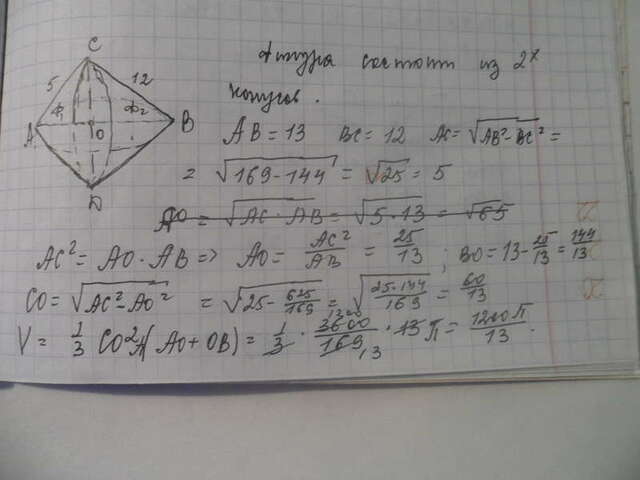 C
5
12
Ф₁
Ф₂
A
O
B
D
Фигура состоит из 2х
конусов.
AB = 13 BC = 12 AC = √(AB² - BC²) =
= √(169 - 144) = √25 = 5
AO = √(AC · AB) = √(5 · 13) = √65
AC² = AO · AB => AO = AC²/AB = 25/13 ; BO = 13 - 25/13 = 144/13
CO = √(AC² - AO²) = √(25 - 625/169) = √(25·144/169) = 60/13
V = 1/3 CO²π(AO + OB) = 1/3 · 3600/169 · 13π = 1200π/13.
1200
13